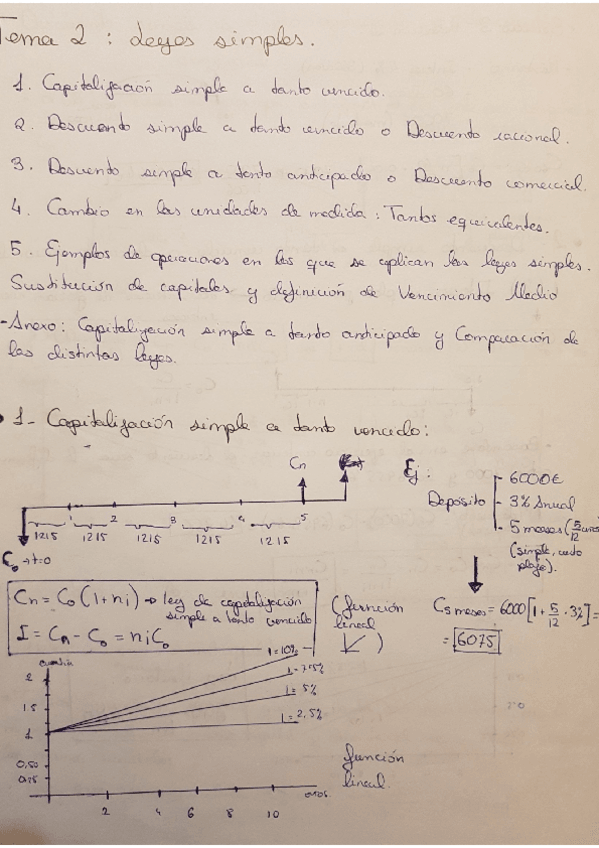 Tema 2 : Leyes simples.
1. Capitalización simple a tanto vencido.
2. Descuento simple a tanto vencido o Descuento racional.
3. Descuento simple a tanto anticipado o Descuento comercial.
4. Cambio en las unidades de medida : Tantos equivalentes.
5. Ejemplos de operaciones en las que se aplican las leyes simples.
Sustitución de capitales y definición de Vencimiento Medio
-Anexo: Capitalización simple a tanto anticipado y Comparación de
las distintas leyes.
1- Capitalización simple a tanto vencido:
Cn
1 2 3 4 5
1215 1215 1215 1215 1215
C₀ → t=0
Ej:
Depósito
6000€
3% Anual
5 meses (5/12 años)
(simple, corto
plazo).
Cn = C₀ (1+ni) → ley de capitalización
simple a tanto vencido
I = Cn - C₀ = niC₀
(función
lineal
)
C5 meses = 6000 [1 + 5/12 · 3%] =
= 6075
cuantía
2
1'5
1
0,50
0,25
i=10%
i=7'5%
i=5%
i=2,5%
2 4 6 8 10
años
función
lineal.